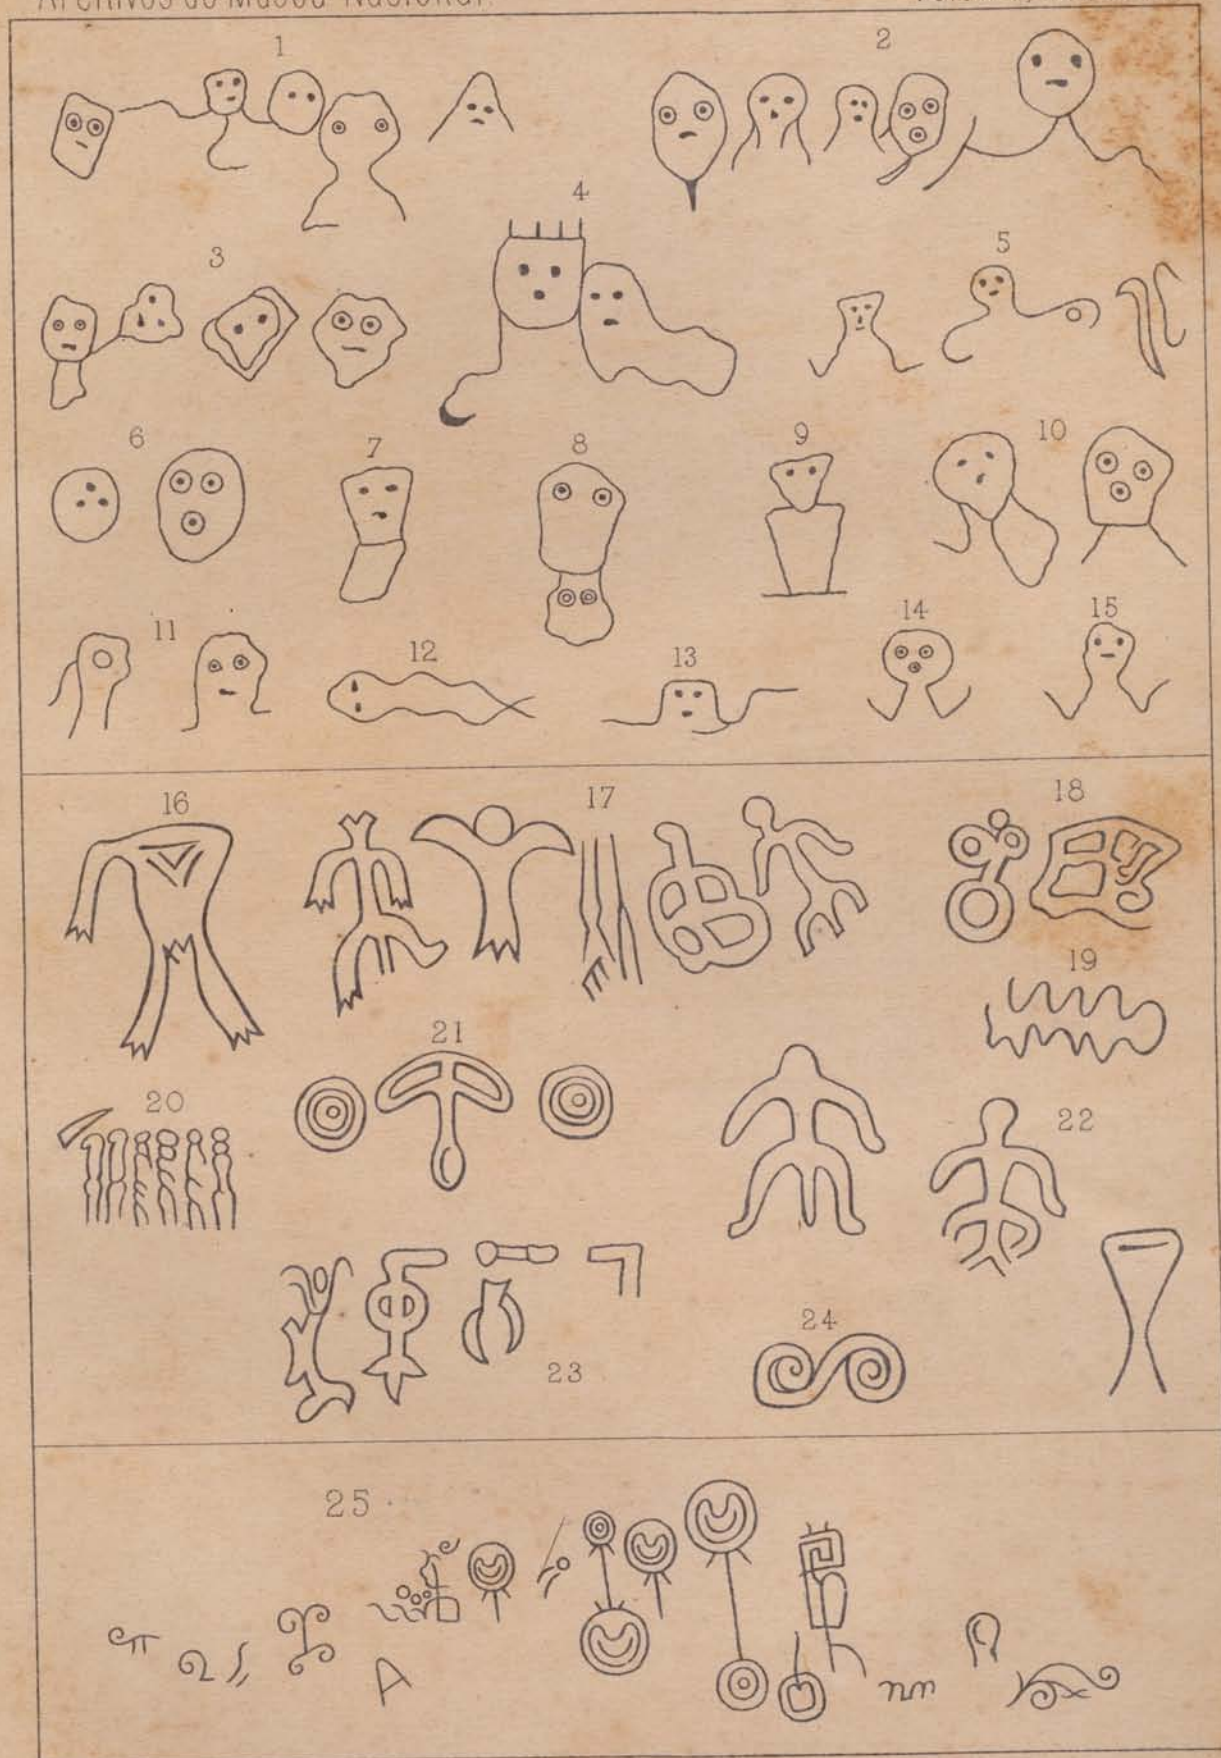 Archivos do Museu Nacional.
1
2
4
3
5
6
7
8
9
10
11
12
13
14
15
16
17
18
19
21
20
22
23
24
25